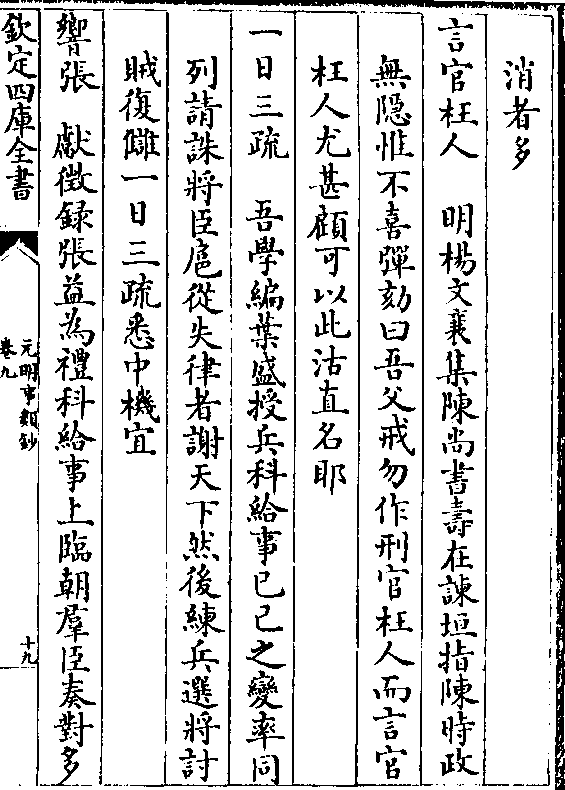 消者多
言官枉人　明楊文襄集陳尚書壽在諫垣指陳時政
無隠惟不喜彈劾曰吾父戒勿作刑官枉人而言官
枉人尤甚顧可以此沽直名耶
一日三疏　吾學編葉盛授兵科給事己己之變率同
列請誅將臣扈從失律者謝天下然後練兵選將討
賊復讎一日三疏悉中機宜
響張　獻徵録張益為禮科給事上臨朝羣臣奏對多
欽定四庫全書
元明事類鈔
卷九
十九